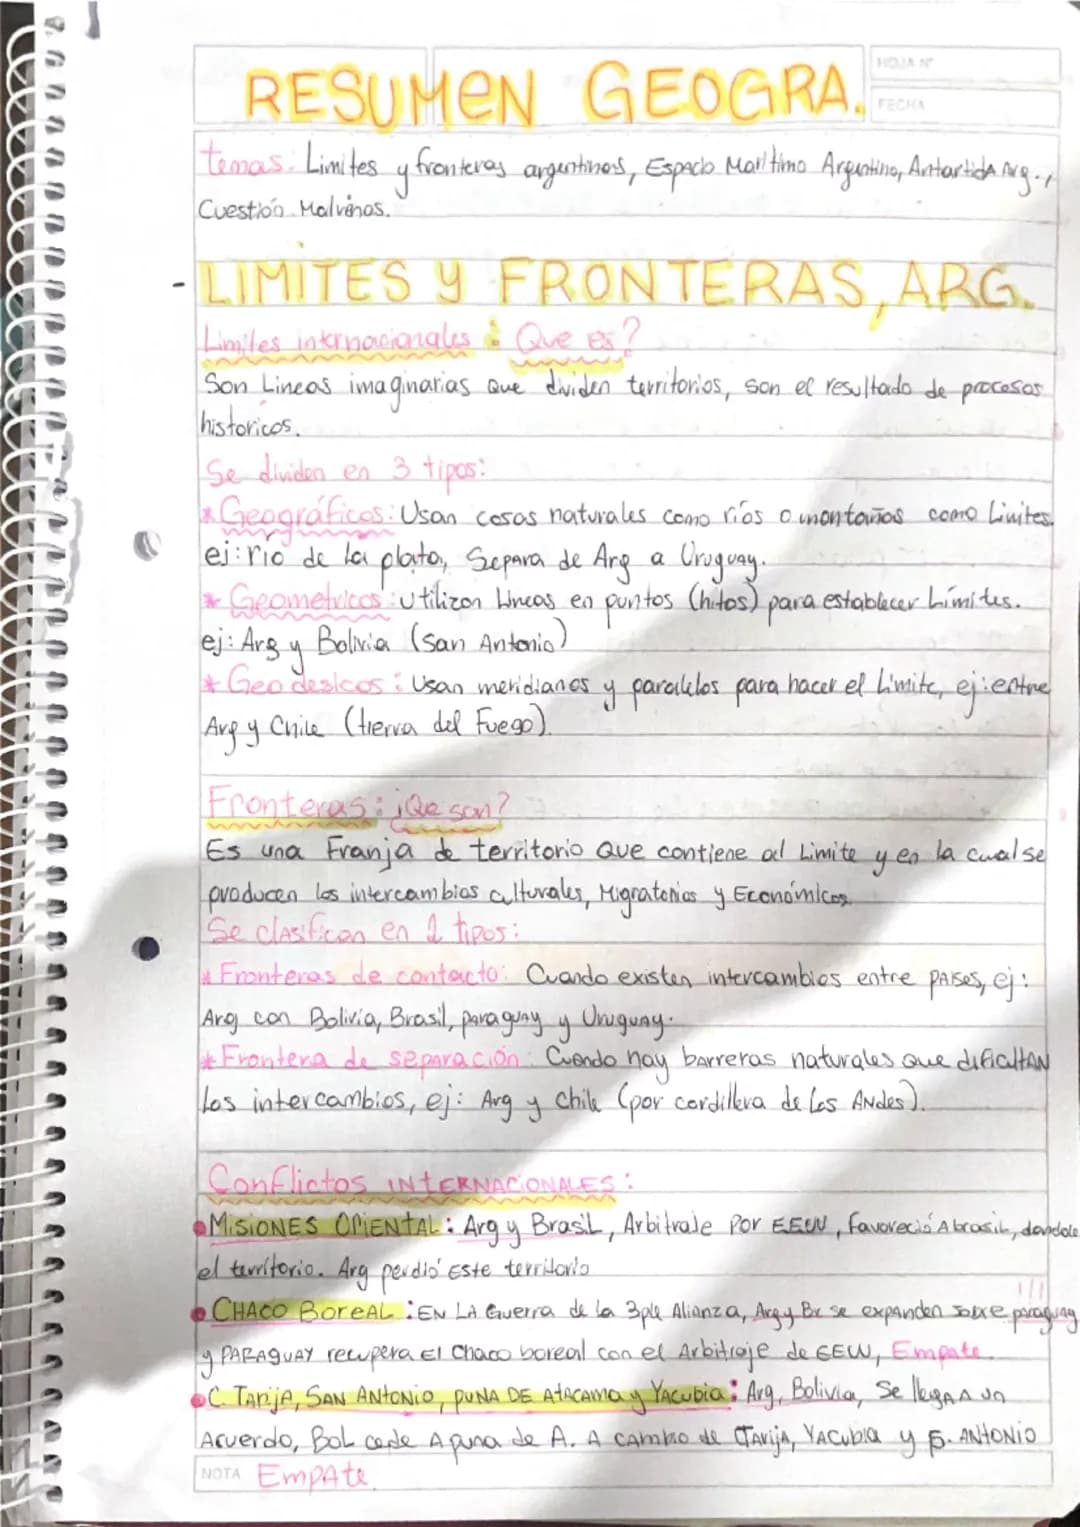 HOJA N°
RESUMEN GEOGRA.
FECHA
temas: Limites y fronteras argentinas, Espacio Maritimo Argentino, Antartida Arg.,
Cuestión Malvinas.
- LIMITES Y FRONTERAS, ARG.
Limites internacionales: Que es?
Son Lineas imaginarias que dividen territorios, son el resultado de procesos
historicos.
Se dividen en 3 tipos:
* Geográficos: Usan cosas naturales como ríos o montañas como Limites.
ej: rio de la plata, Separa de Arg a Uruguay.
* Geometricos: utilizan Lineas en puntos (hitos) para establecer Límites.
ej: Arg y Bolivia (san Antonio)
* Geodesicos: Usan meridianos y paralelos para hacer el Limite, ej: entre
Arg y Chile (tierra del Fuego).
Fronteras: ¿Que son?
Es una Franja de territorio Que contiene al Limite y en la cual se
producen los intercambios culturales, Migratorios y Económicos
Se clasifican en 2 tipos:
* Fronteras de contacto: Cuando existen intercambios entre paises, ej:
Arg con Bolivia, Brasil, paraguay y Uruguay.
* Frontera de separación: Cuando hay barreras naturales que dificultan
los intercambios, ej: Arg y Chile (por cordillera de los Andes).
Conflictos INTERNACIONALES:
• MISIONES ORIENTAL: Arg y Brasil, Arbitraje por EEUU, favoreció A brasil, dandole
el territorio. Arg perdió Este territorio
!!!
• CHACO BOREAL: EN LA Guerra de la 3ple Alianza, Arg y Br se expanden sobre paraguay
y PARAGUAY recupera El Chaco boreal con el Arbitraje de EEUU, Empate.
• C. TARIJA, SAN ANTONIO, PUNA DE Atacama y Yacubia: Arg, Bolivia, Se llegan A un
Acuerdo, Bol cede A puna de A. A cambio de TARIJA, YACUBIA y S. ANTONIO
NOTA Empate